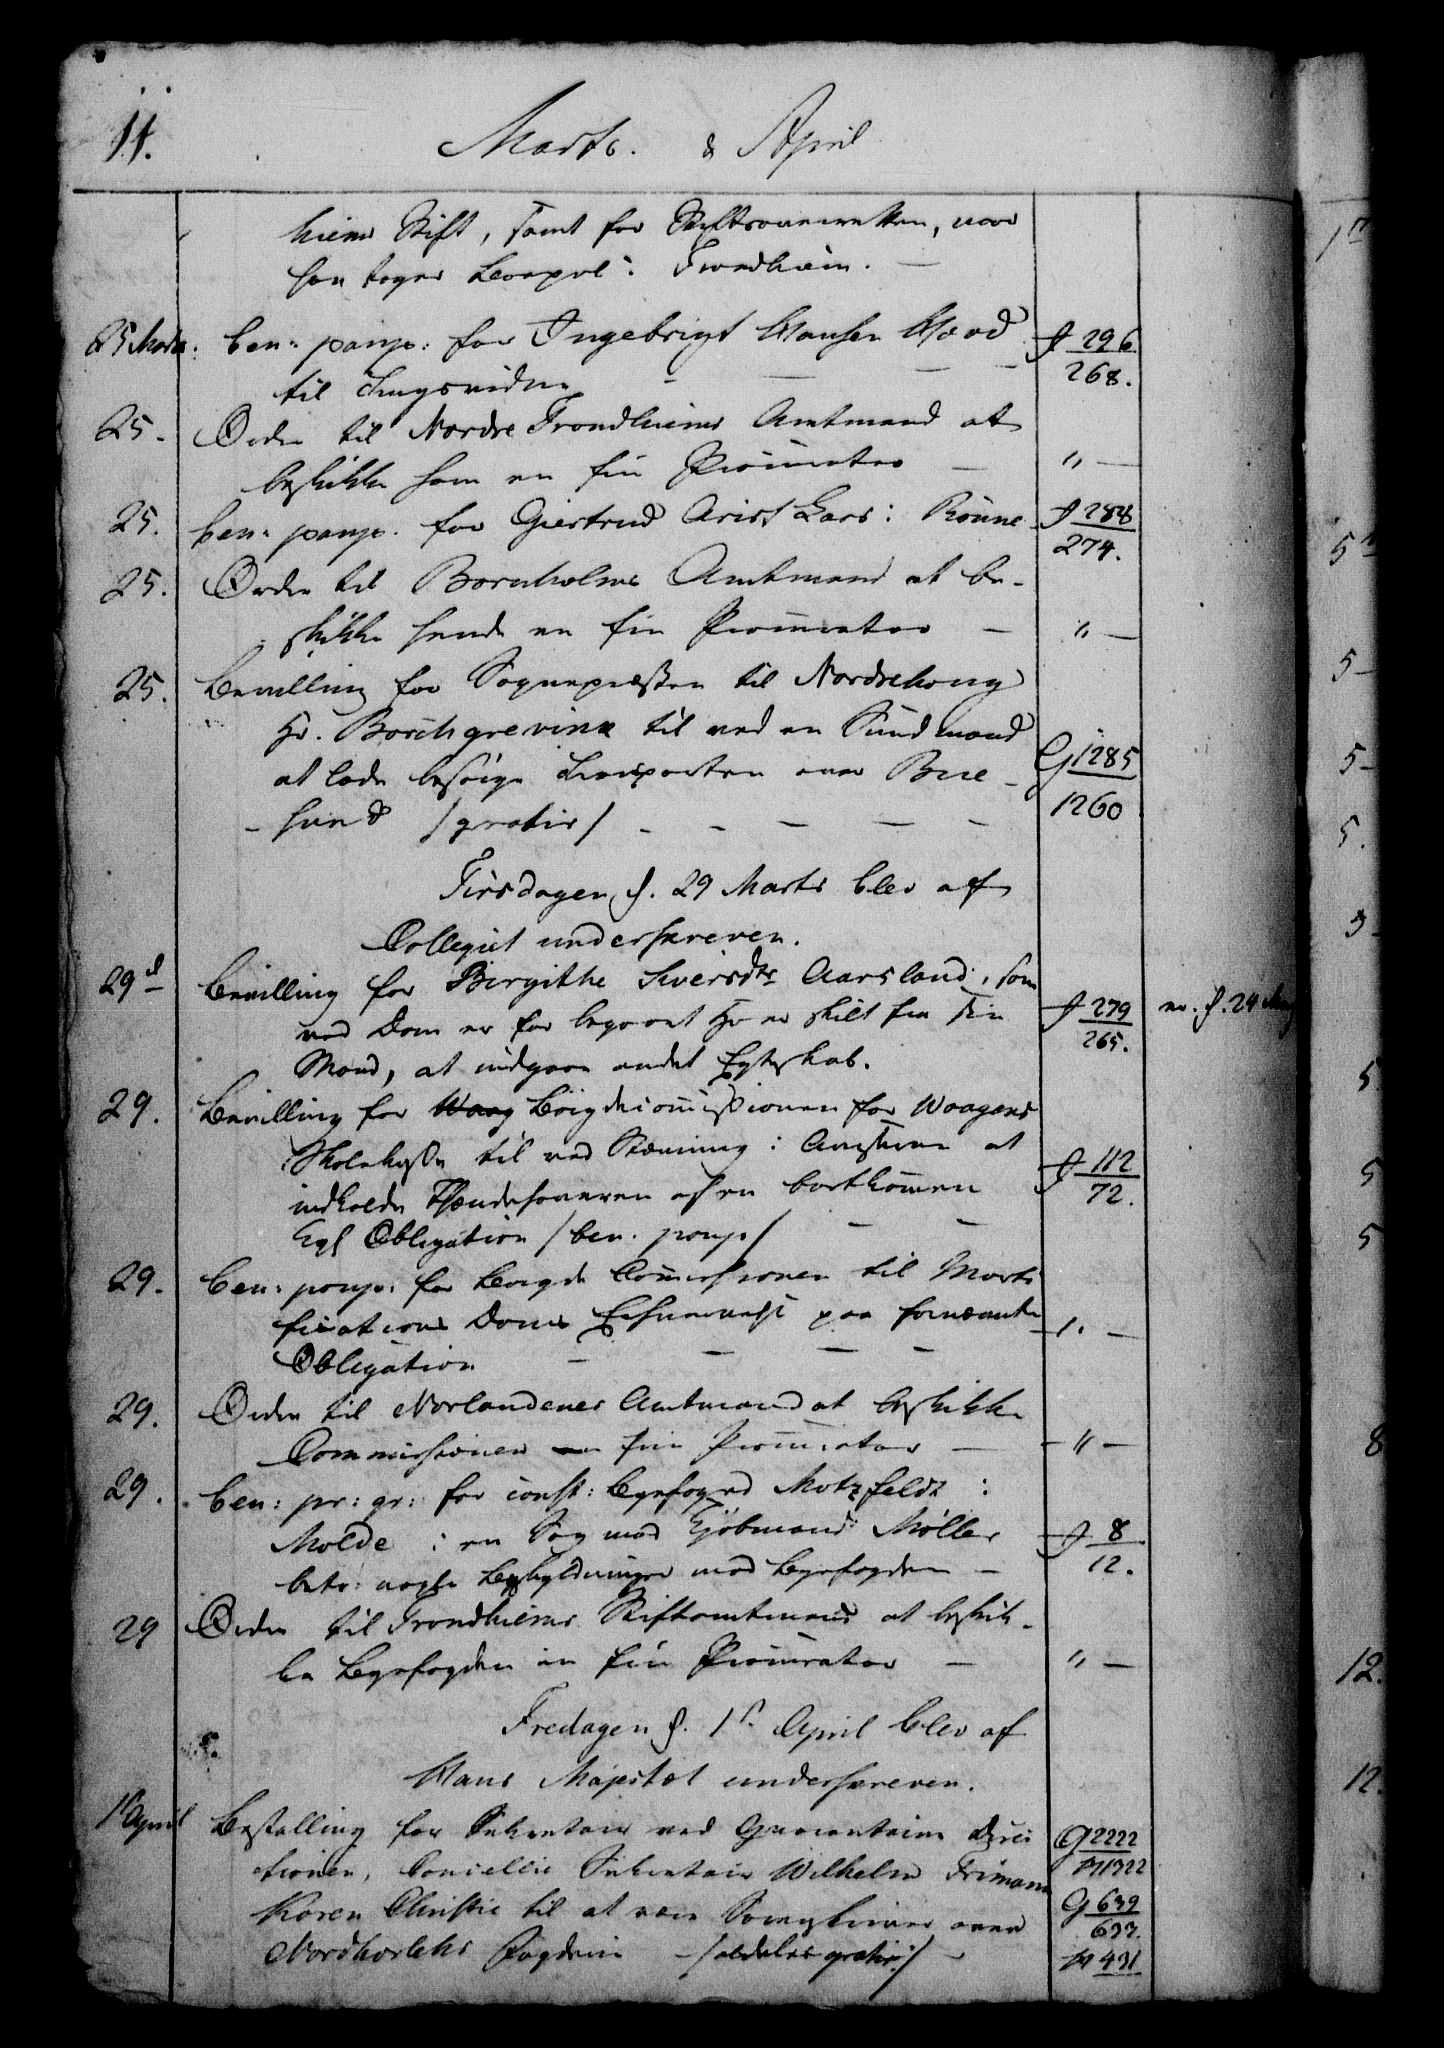 11.
Marts. & April
hiems Stift, samt for Stiftsoverretten, naar
han tager Boepæl i Trondhiem. —
25 Marts. ben: paup: for Ingebrigt Hansen Hood J 296
til Tingsvidne — — — — 268.
25. Ordre til Nordre Trondhiems Amtmand at
beskikke ham en fin Procurator — " —
25. ben: paup. for Giertrud Arist Lars: Rönne J 288
274.
25. Ordre til Bornholms Amtmand at be-
skikke hende en fin Procurator — " —
25. Bevilling for Sognepræsten til Nordrehoug
Hr. Borchgrevink til ved en Sundmand
at lade besörge Transporten over Bue- G 1285
- sund /gratis/ - - - - - 1260
Tirsdagen d. 29 Marts blev af
Collegiet underskreven.
29 d Bevilling for Birgithe Siversdtr Aarsland, som
ved Dom er for begaaet Hor er skilt fra sin J 279
Mand, at indgaae andet Egteskab. 265.
er. d. 24 May
29. Bevilling for Waag Böigdecommissionen for Waagens
Skolekasse til ved Stævning i Aviserne at J 112
indkalde Ihændehaveren af en bortkommen 72.
Kgl Obligation /ben. paup/ — —
29. ben: paup: for Böigde Commissionen til Morti
fications Doms Erhvervelse paa fornævnte " —
Obligation — — — —
29. Ordre til Norlandenes Amtmand at beskikke
Commissionen en fin Procurator — — " —
29. ben: pr: gr: for const: Byefoged Motzfeldt i
Molde i en Sag mod Kjöbmand Möller J 8
betr: nogle Beskyldninger mod Byefogden — 12.
29 Ordre til Trondhiems Stiftamtmand at beskik-
ke Byefogden en fin Procurator — " —
Fredagen d. 1st. April blev af
Hans Majestæt underskreven.
1st April Bestalling for Sekretair ved Qvarantaine Direc G 2222
tionen, Cancellie Sekretair Wilhelm Frimann M 1322
Koren Christie til at være Sorenskriver over G 639
693.
Nordhorlehns Fogderie — /aldeles gratis/ — M 431